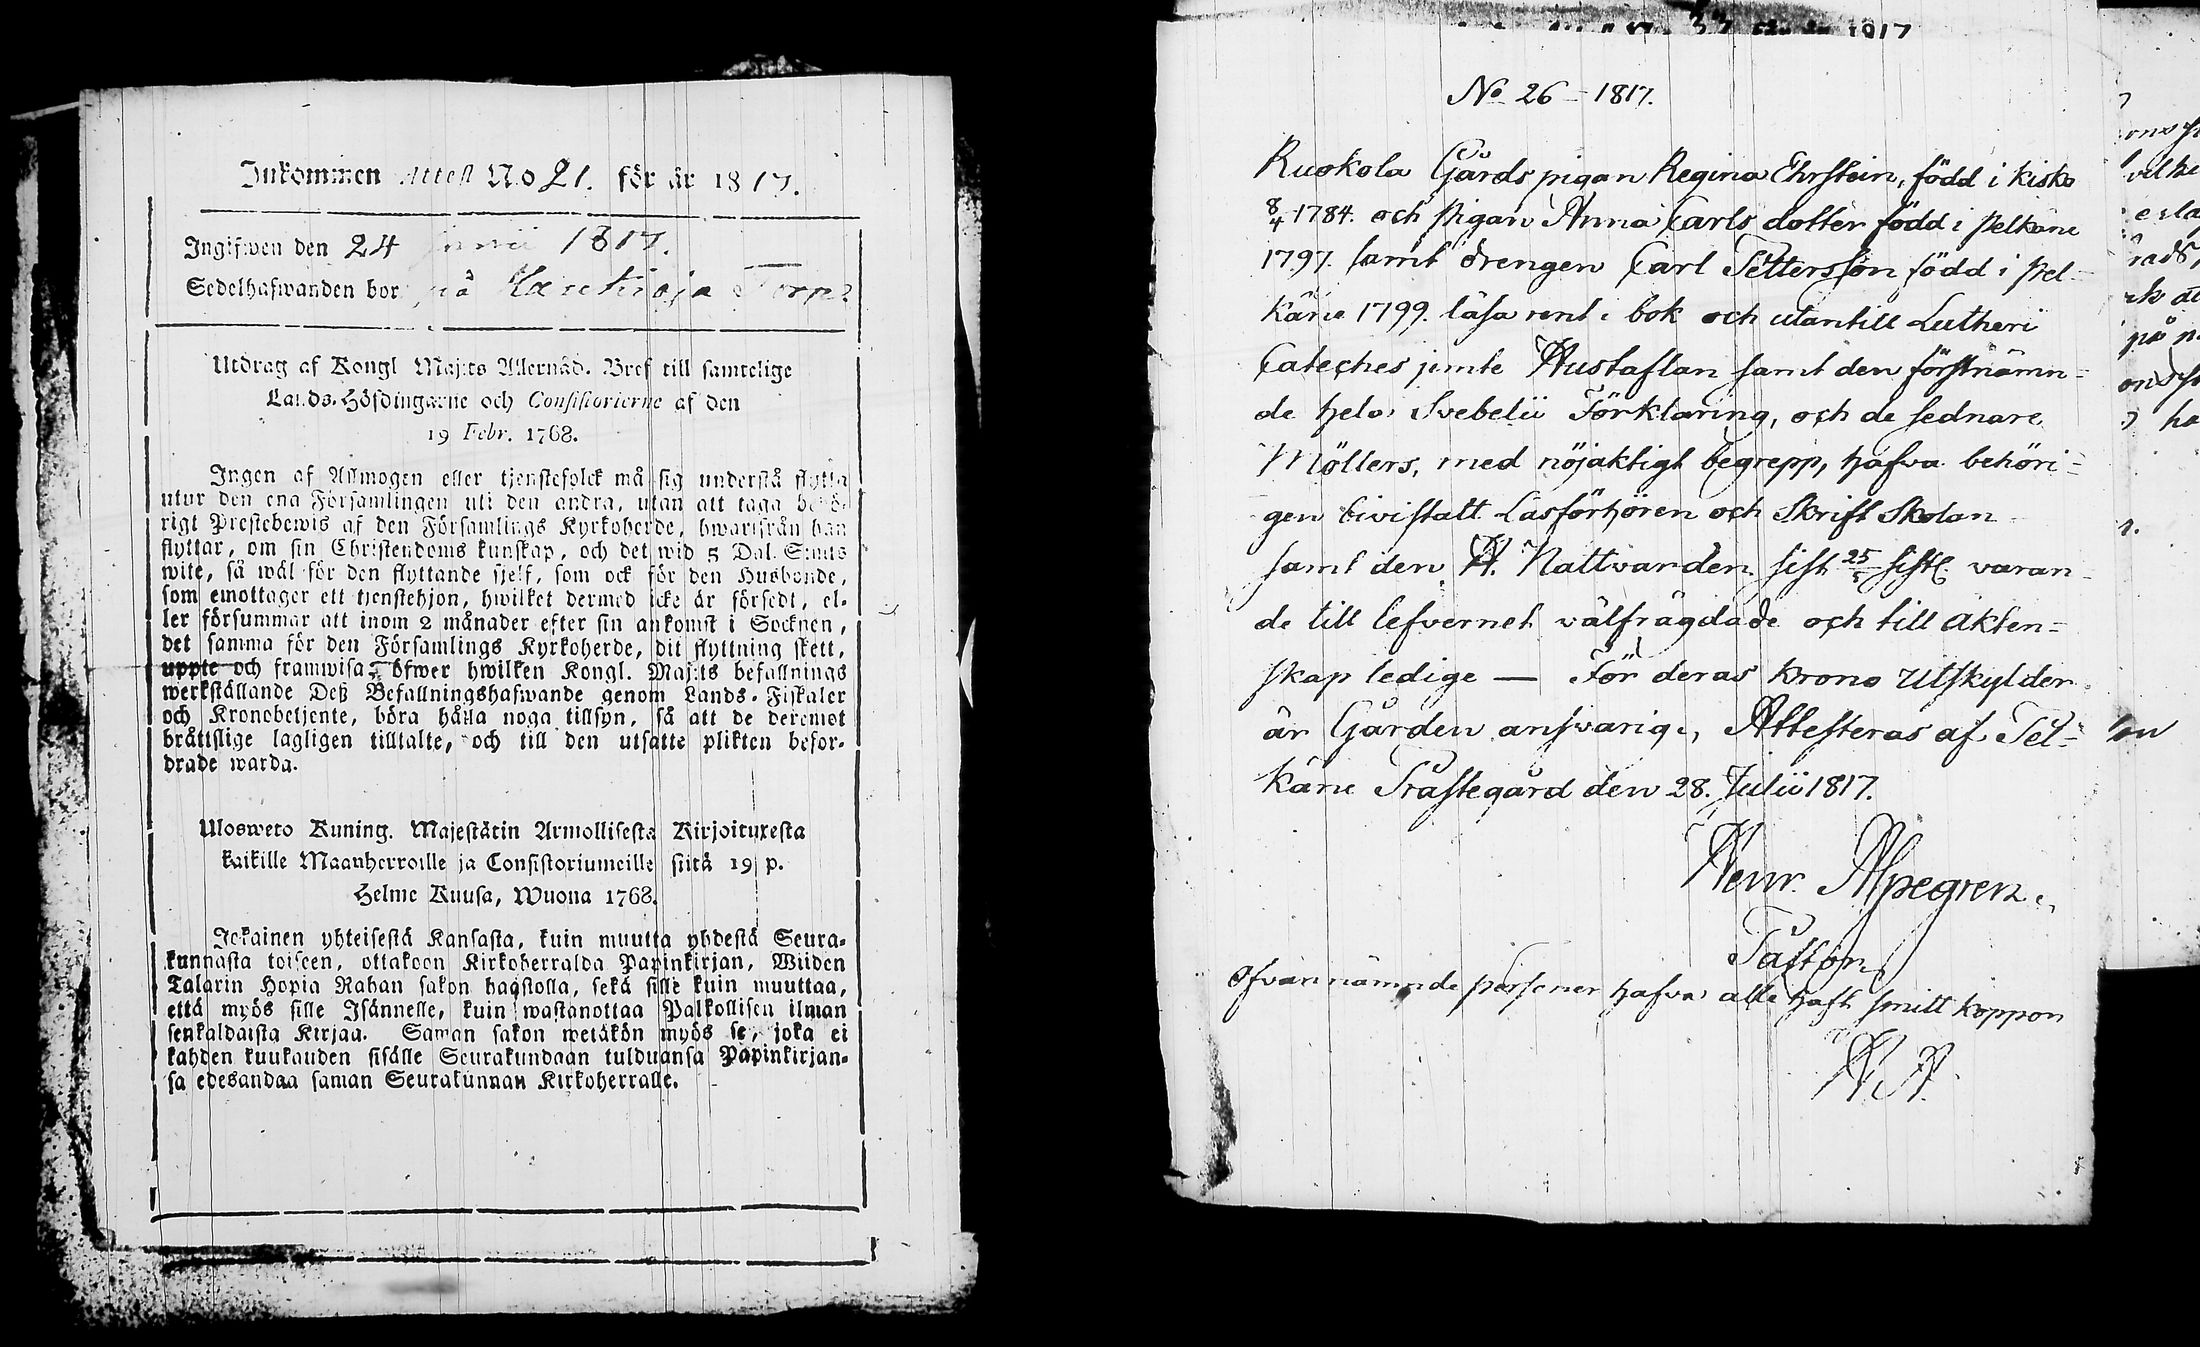 Inkommen Attest No 21. för år 1817.
Ingifwen den 24 Junii 1817.
Sedelhafwanden bor på Torp.
Utdrag af Kongl Maj:ts Allernåd. Bref till samtelige
Lands-Höfdingarne och Consistorierne af den
19 Febr. 1768.
Ingen af Allmogen eller tjenstefolck må sig understå flytta
utur den ena Församlingen uti den andra, utan att taga behö-
rigt Prestebewis af den Församlings Kyrkoherde, hwarifrån han
flyttar, om sin Christendoms kunskap, och det wid 5 Dal. S:mts
wite, så wäl för den flyttande sjelf, som ock för den Husbonde,
som emottager ett tjenstehjon, hwilket dermed icke är försedt, el-
ler försummar att inom 2 månader efter sin ankomst i Socknen,
det samma för den Församlings Kyrkoherde, dit flyttning skett,
uppte och framwisa; öfwer hwilken Kongl. Maj:ts befallnings
werkställande Deß Befallningshafwande genom Lands-Fiskaler
och Kronobetjente, böra hålla noga tillsyn, så att de deremot
bråttslige lagligen tilltalte, och till den utsatte plikten befor-
drade warda.
Ulosweto Kuning. Majestätin Armollisesta Kirjoituxesta
kaikille Maanherroille ja Consistoriumeille siitä 19 p.
Helme Kuusa, Wuona 1768.
Jokainen yhteisestä Kansasta, kuin muutta yhdestä Seura-
kunnasta toiseen, ottakoon Kirkoherralda Papinkirjan, Wiiden
Talarin Hopia Rahan sakon haastolla, sekä sille kuin muuttaa,
että myös sille Isännelle, kuin wastanottaa Palkollisen ilman
senkaldaista Kirjaa. Saman sakon wetäkön myös se, joka ei
kahden kuukauden sisälle Seurakundaan tulduansa Papinkirjan-
sa edesandaa saman Seurakunnan Kirkoherralle.
1817
No 26 - 1817.
Ruokola Gårds pigan Regina Ehrstein, född i Kisko
8/4 1784. och pigan Anna Carls dotter född i Pelkäne
1797. samt drengen Carl Pettersson född i Pel-
käne 1799. läsa rent i bok och utantill Lutheri
Cateches jemte Hustaflan samt den förstnämn-
de hela Svebelii Förklaring, och de sednare
Möllers, med nöjaktigt begrepp, hafva behöri-
gen bivistatt Läsförhören och Skrift Skolan
samt den H. Nattvarden sist 25/5 sistl. varan-
de till lefvernet välfrägdade och till Äkten-
skap ledige — För deras Krono Utskylder
är Gården answarig, Attesteras af Pel-
käne Prästegård den 28. Julii 1817.
Henr. Alpegren,
Pastor
Ofvannämnde personer hafva alle haft smitt koppon
H. A.